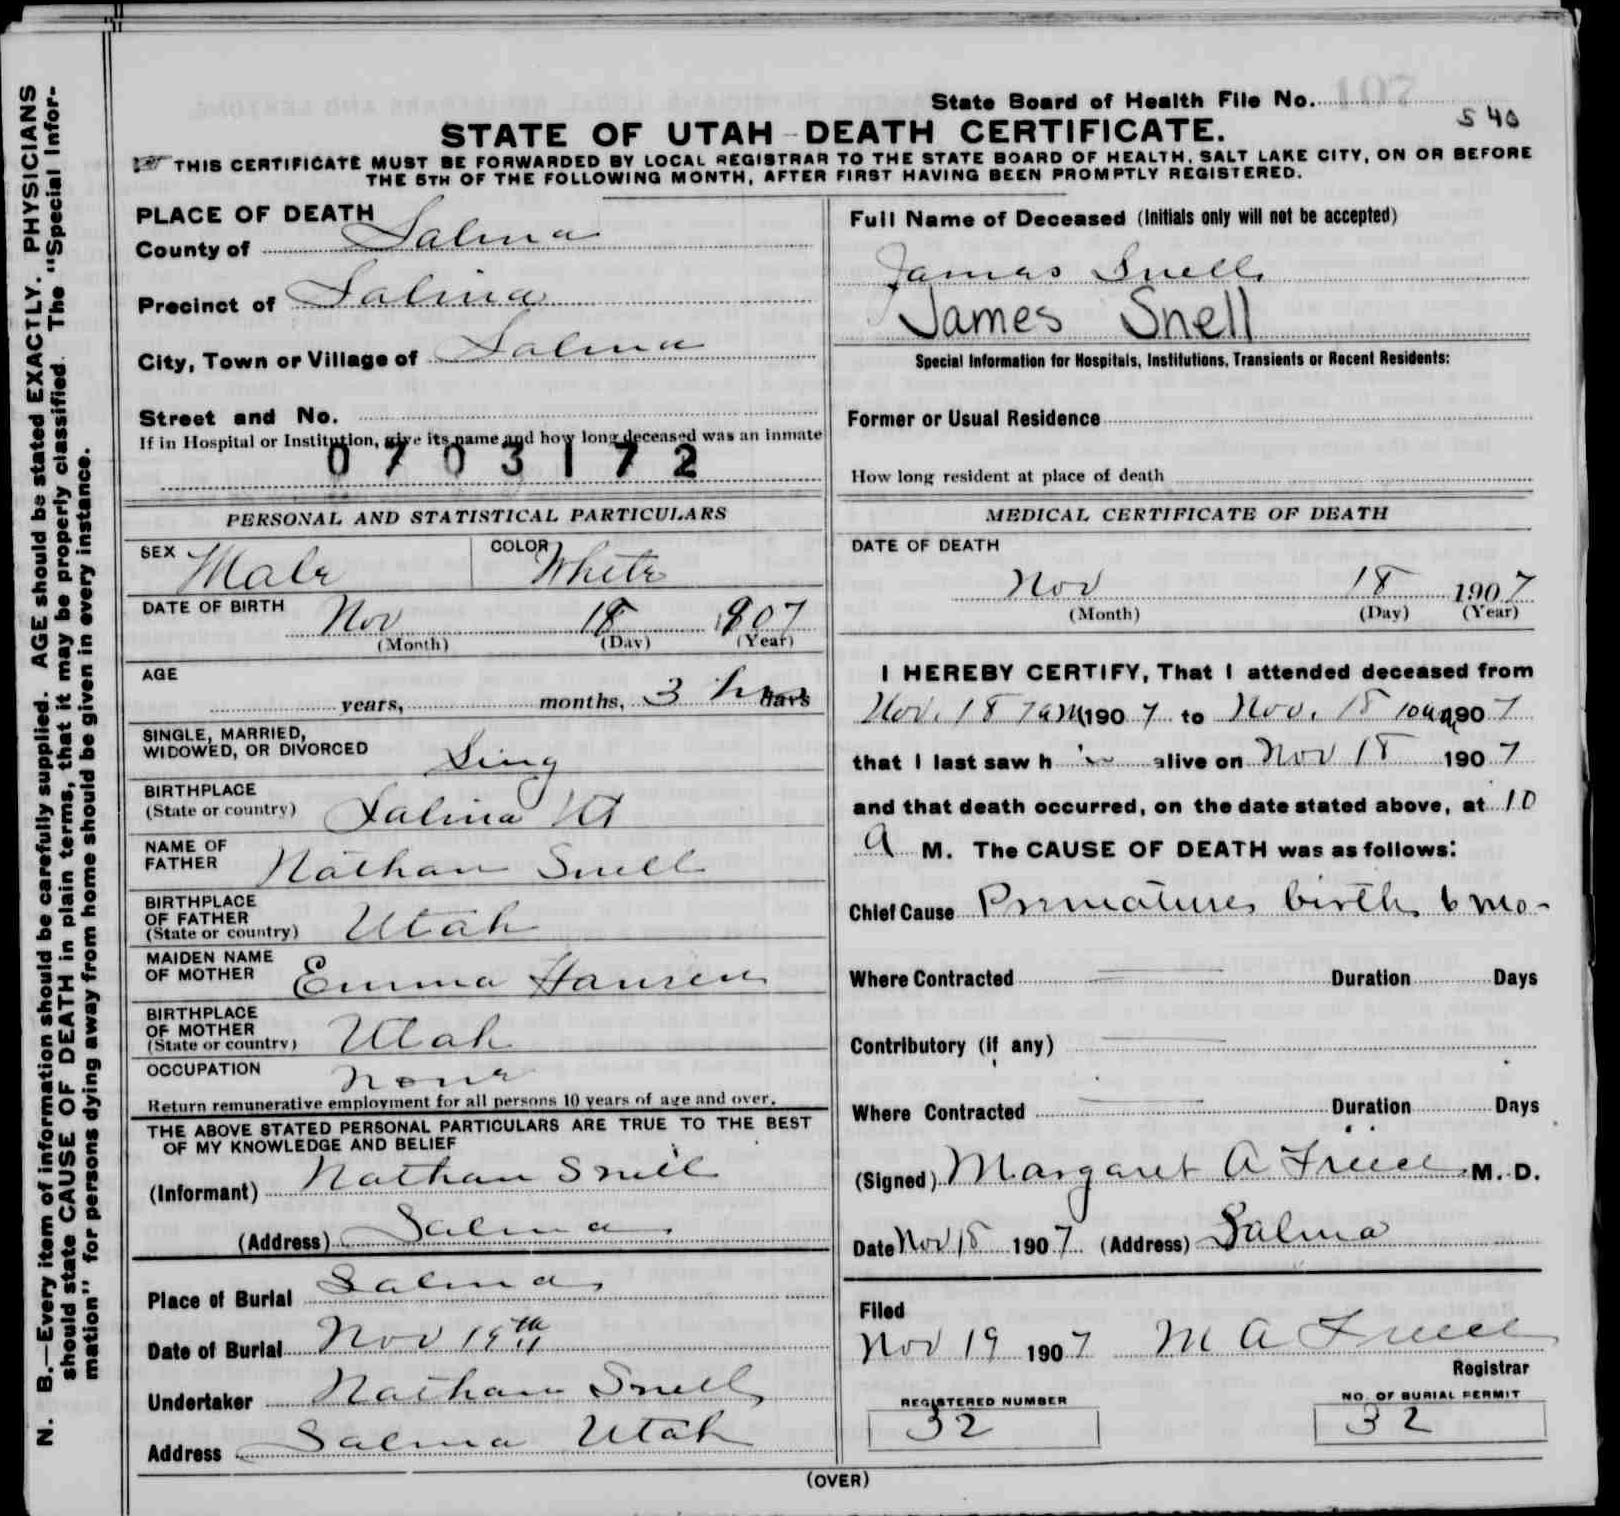 State Board of Health File No. 107
540
STATE OF UTAH - DEATH CERTIFICATE.
THIS CERTIFICATE MUST BE FORWARDED BY LOCAL REGISTRAR TO THE STATE BOARD OF HEALTH, SALT LAKE CITY, ON OR BEFORE
THE 5TH OF THE FOLLOWING MONTH, AFTER FIRST HAVING BEEN PROMPTLY REGISTERED.
N. B.—Every item of information should be carefully supplied. AGE should be stated EXACTLY. PHYSICIANS
should state CAUSE OF DEATH in plain terms, that it may be properly classified. The "Special Infor-
mation" for persons dying away from home should be given in every instance.
PLACE OF DEATH
County of Salina
Precinct of Salina
City, Town or Village of Salina
Street and No.
If in Hospital or Institution, give its name and how long deceased was an inmate
0703172
PERSONAL AND STATISTICAL PARTICULARS
SEX Male COLOR White
DATE OF BIRTH Nov 18 1907
(Month) (Day) (Year)
AGE
years, months, 3 hrs days
SINGLE, MARRIED,
WIDOWED, OR DIVORCED Sing
BIRTHPLACE
(State or country) Salina Ut
NAME OF
FATHER Nathan Snell
BIRTHPLACE
OF FATHER
(State or country) Utah
MAIDEN NAME
OF MOTHER Emma Hansen
BIRTHPLACE
OF MOTHER
(State or country) Utah
OCCUPATION none
Return remunerative employment for all persons 10 years of age and over.
THE ABOVE STATED PERSONAL PARTICULARS ARE TRUE TO THE BEST
OF MY KNOWLEDGE AND BELIEF
(Informant) Nathan Snell
(Address) Salina
Place of Burial Salina
Date of Burial Nov 19th
Undertaker Nathan Snell
Address Salina Utah
Full Name of Deceased (Initials only will not be accepted)
James Snell
James Snell
Special Information for Hospitals, Institutions, Transients or Recent Residents:
Former or Usual Residence
How long resident at place of death
MEDICAL CERTIFICATE OF DEATH
DATE OF DEATH
Nov 18 1907
(Month) (Day) (Year)
I HEREBY CERTIFY, That I attended deceased from
Nov. 18 7am 1907 to Nov. 18 10am 1907
that I last saw him alive on Nov 18 1907
and that death occurred, on the date stated above, at 10
A M. The CAUSE OF DEATH was as follows:
Chief Cause Premature birth 6 mo-
Where Contracted Duration Days
Contributory (if any)
Where Contracted Duration Days
(Signed) Margaret A M. D.
Date Nov 18 1907 (Address) Salina
Filed
Nov 19 1907 M A
Registrar
REGISTERED NUMBER
32
NO. OF BURIAL PERMIT
32
(OVER)